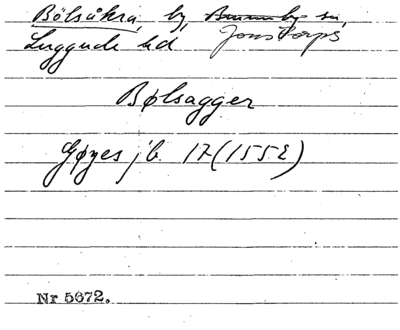 Bölsåkra, by, Brunnby sn,
Luggude hd Jonstorps
Bølsagger
Gøyes jb 17 (1552)
Nr 5672.